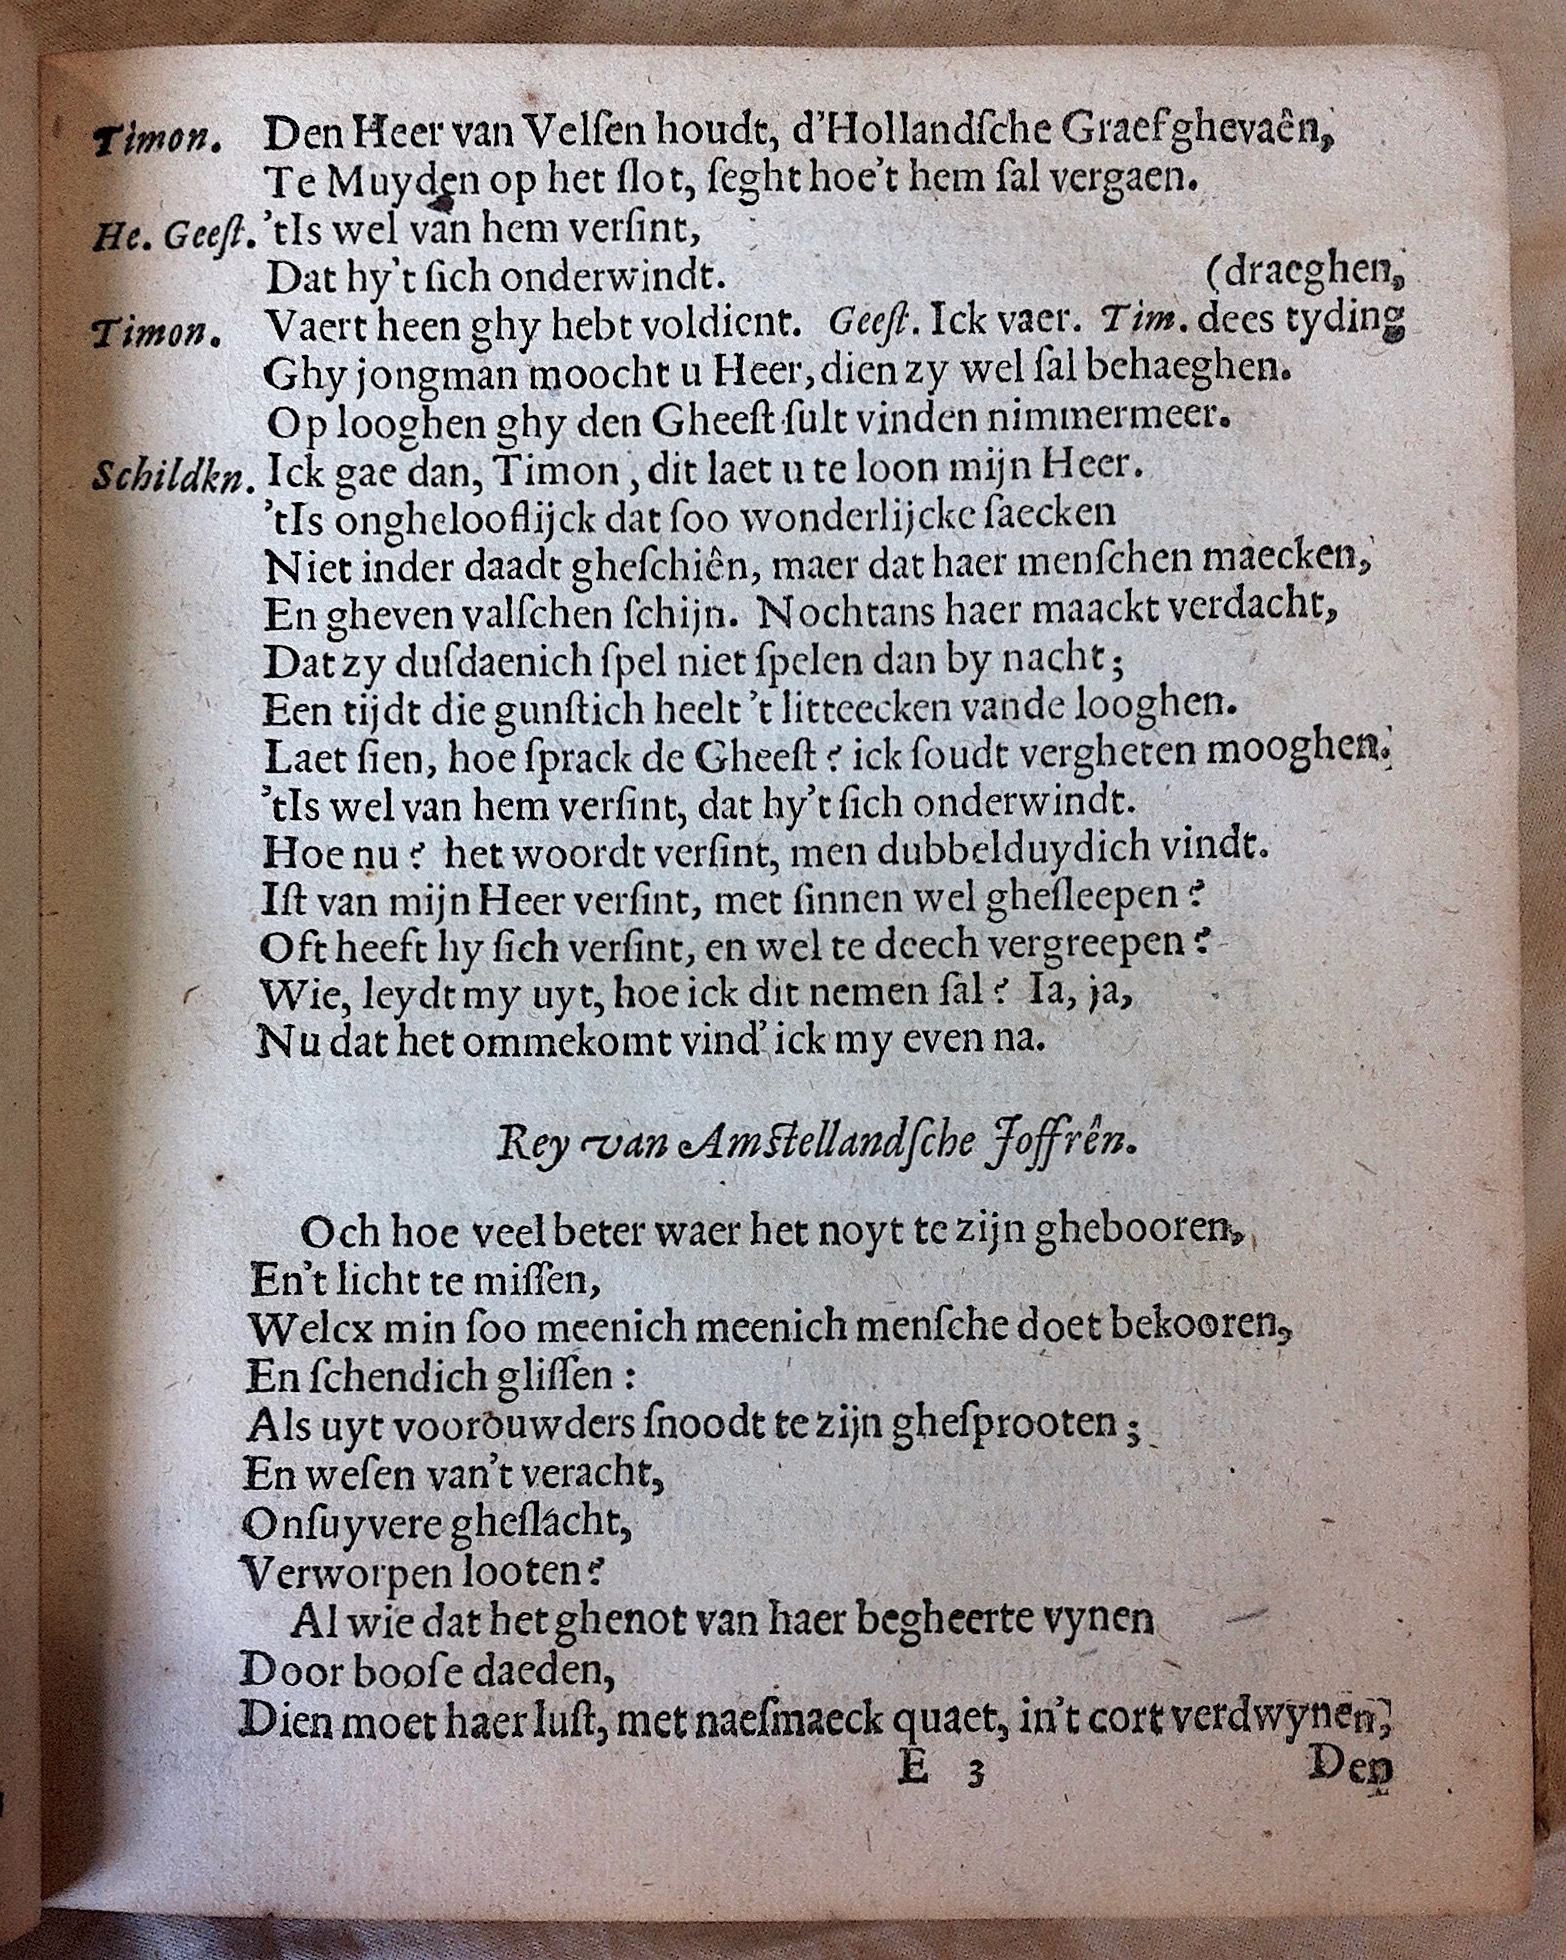 Timon. Den Heer van Velſen houdt, d'Hollandſche Graef ghevaên,
Te Muyden op het ſlot, ſeght hoe't hem ſal vergaen.
He. Geeſt. 'tIs wel van hem verſint,
Dat hy't ſich onderwindt. (draeghen,
Timon. Vaert heen ghy hebt voldient. Geeſt. Ick vaer. Tim. dees tyding
Ghy jongman moocht u Heer, dien zy wel ſal behaeghen.
Op looghen ghy den Gheeſt ſult vinden nimmermeer.
Schildkn. Ick gae dan, Timon, dit laet u te loon mijn Heer.
'tIs onghelooflijck dat ſoo wonderlijcke ſaecken
Niet inder daadt gheſchiên, maer dat haer menſchen maecken,
En gheven valſchen ſchijn. Nochtans haer maackt verdacht,
Dat zy duſdaenich ſpel niet ſpelen dan by nacht;
Een tijdt die gunſtich heelt 't litteecken vande looghen.
Laet ſien, hoe ſprack de Gheeſt? ick ſoudt vergheten mooghen.
'tIs wel van hem verſint, dat hy't ſich onderwindt.
Hoe nu? het woordt verſint, men dubbelduydich vindt.
Iſt van mijn Heer verſint, met ſinnen wel gheſleepen?
Oft heeft hy ſich verſint, en wel te deech vergreepen?
Wie, leydt my uyt, hoe ick dit nemen ſal? Ia, ja,
Nu dat het ommekomt vind' ick my even na.
Rey van Amſtellandſche Joffrên.
Och hoe veel beter waer het noyt te zijn ghebooren,
En't licht te miſſen,
Welcx min ſoo meenich meenich menſche doet bekooren,
En ſchendich gliſſen:
Als uyt voorouwders ſnoodt te zijn gheſprooten;
En weſen van't veracht,
Onſuyvere gheſlacht,
Verworpen looten?
Al wie dat het ghenot van haer begheerte vynen
Door booſe daeden,
Dien moet haer luſt, met naeſmaeck quaet, in't cort verdwynen,
E 3 Den